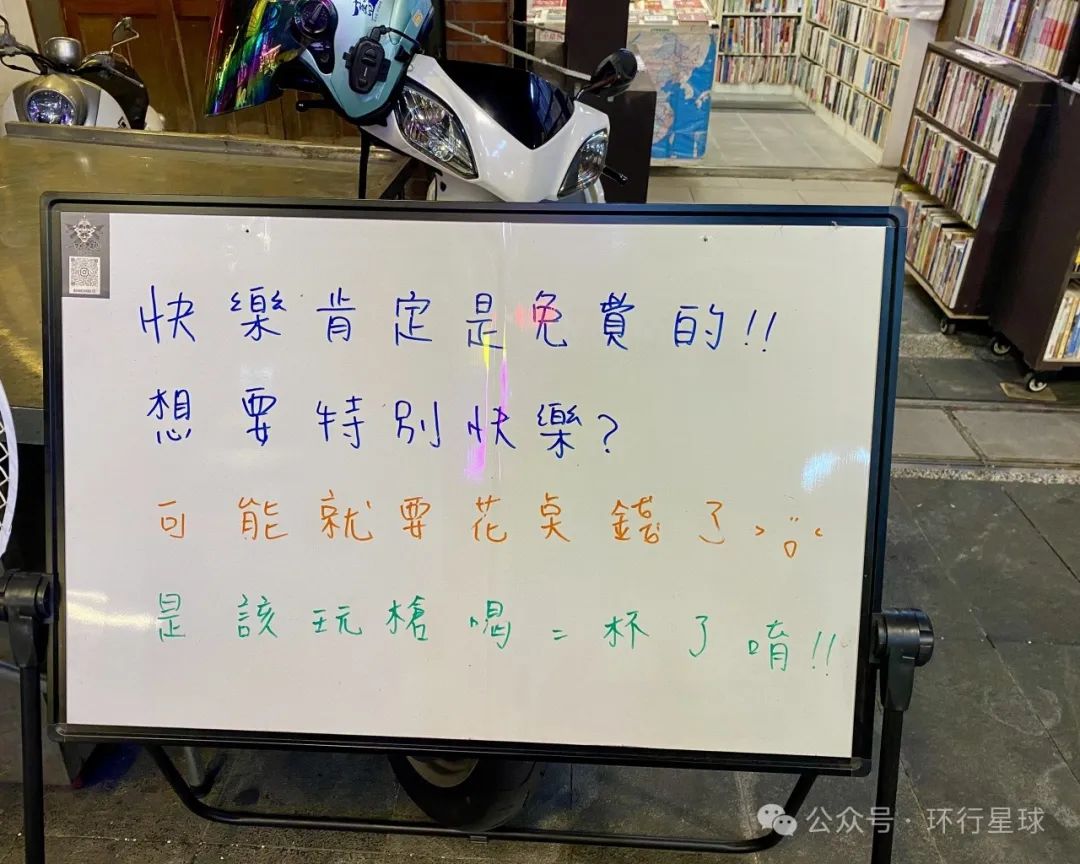 快樂肯定是免費的!!
想要特別快樂?
可能就要花桌錯了
是該玩槍喝二杯了唷!!
公众号·环行星球